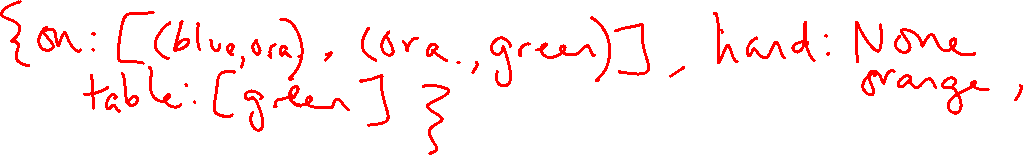 {on: [(blue,ora), (ora.,green)], hand: None
orange,
table: [green] }